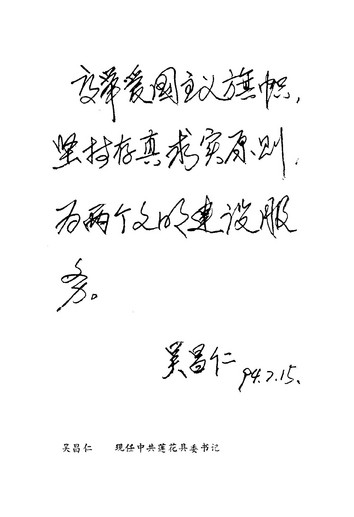 高举爱国主义旗帜，
坚持存真求实原则，
为两个文明建设服
务。
吴昌仁 94.7.15.
吴昌仁 现任中共莲花县委书记